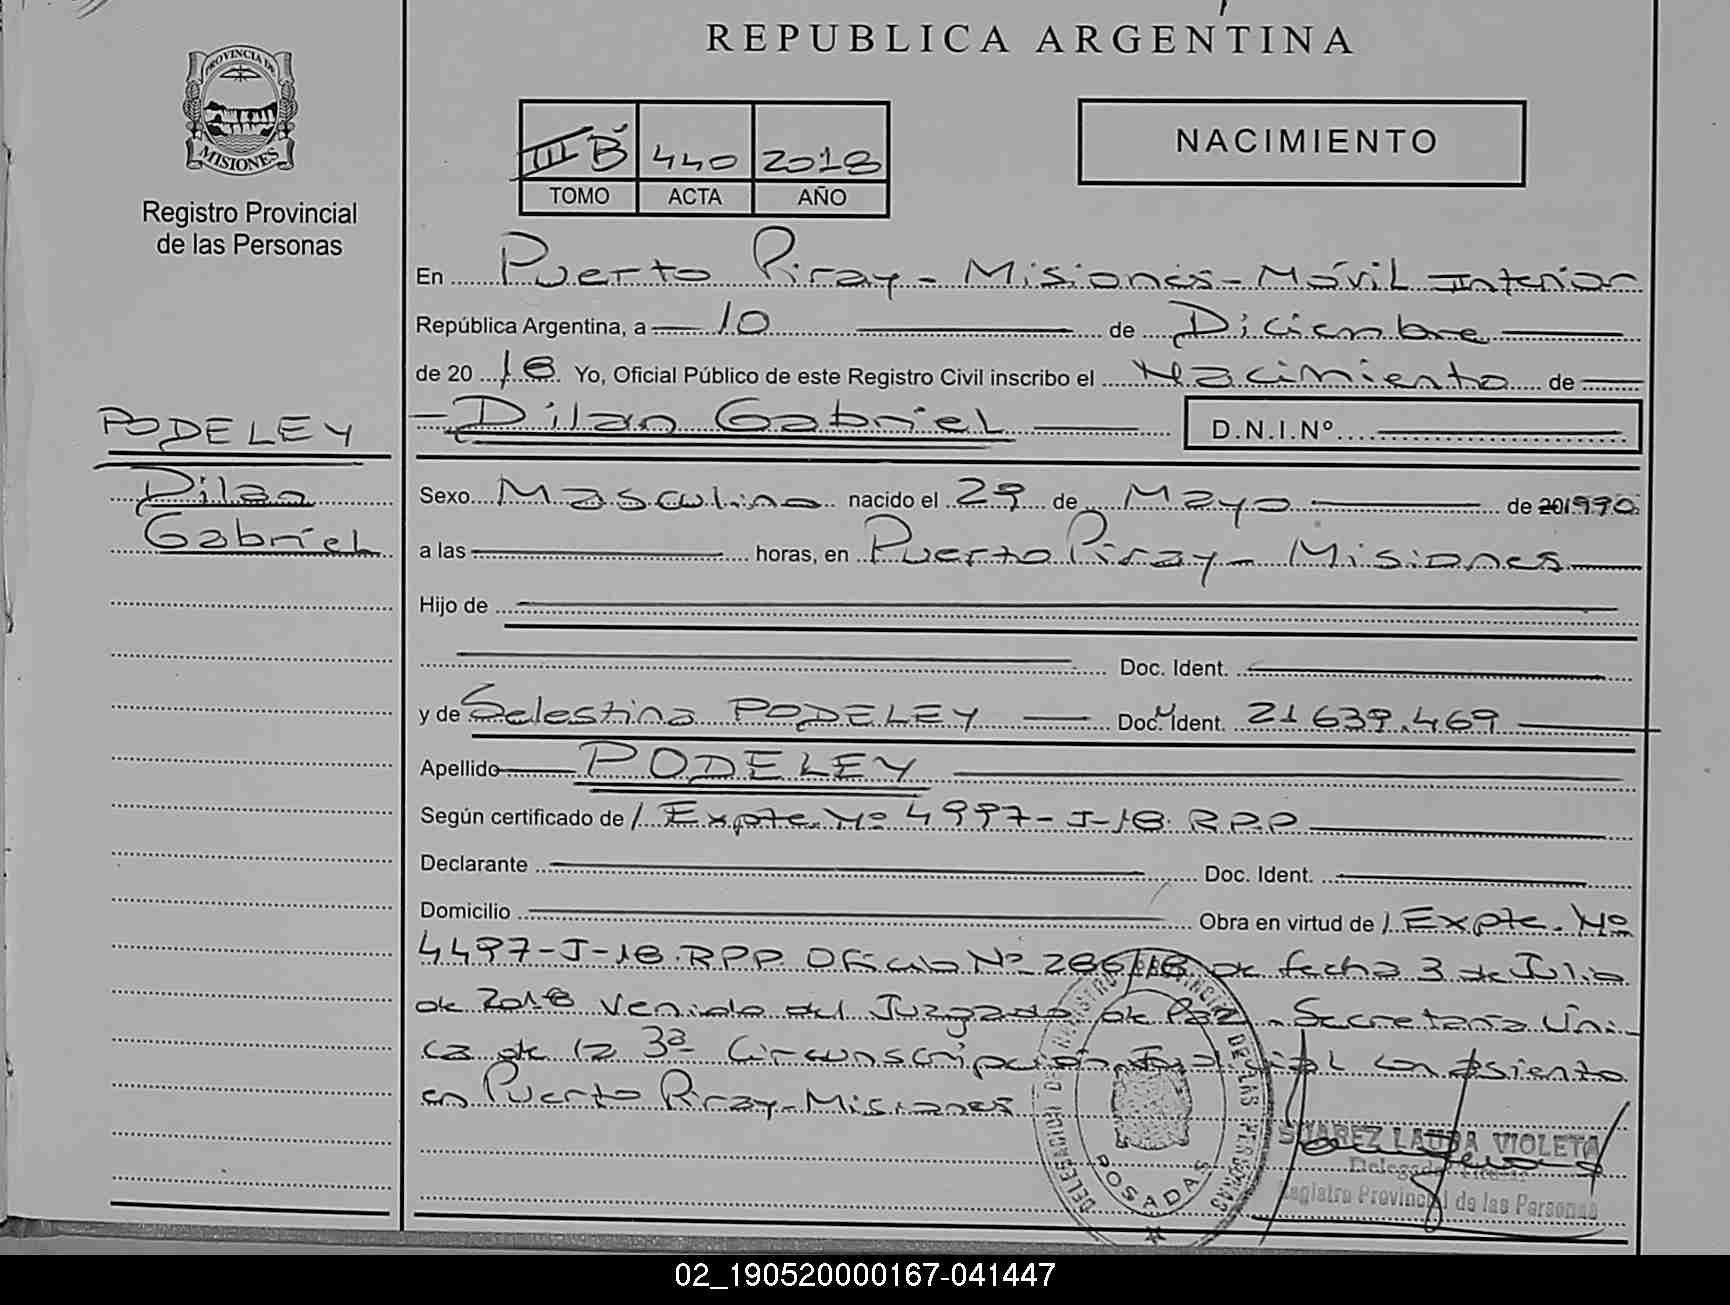 REPUBLICA ARGENTINA
PROVINCIA DE
MISIONES
Registro Provincial
de las Personas
III B 440 2018
TOMO ACTA AÑO
NACIMIENTO
En Puerto Piray - Misiones - Móvil Interior
República Argentina, a 10 de Diciembre
de 20 18 Yo, Oficial Público de este Registro Civil inscribo el Nacimiento de
Dilan Gabriel D.N.I.Nº
PODELEY
Dilan
Gabriel
Sexo Masculino nacido el 29 de Mayo de 201990
a las horas, en Puerto Piray - Misiones
Hijo de
Doc. Ident.
y de Selestina PODELEY Doc. Ident. 21 639.469
Apellido PODELEY
Según certificado de / Expte. Nº 4997-J-18. R.P.P
Declarante Doc. Ident.
Domicilio Obra en virtud de / Expte. Nº
4497-J-18. RPP. Oficio Nº 286/18 de fecha 3 de Julio
de 2018 venido del Juzgado de Paz - Secretaría Úni-
ca de la 3ª Circunscripción Judicial con asiento
en Puerto Piray - Misiones
POSADAS
SUAREZ LAURA VIOLETA
Registro Provincial de las Personas
02_190520000167-041447